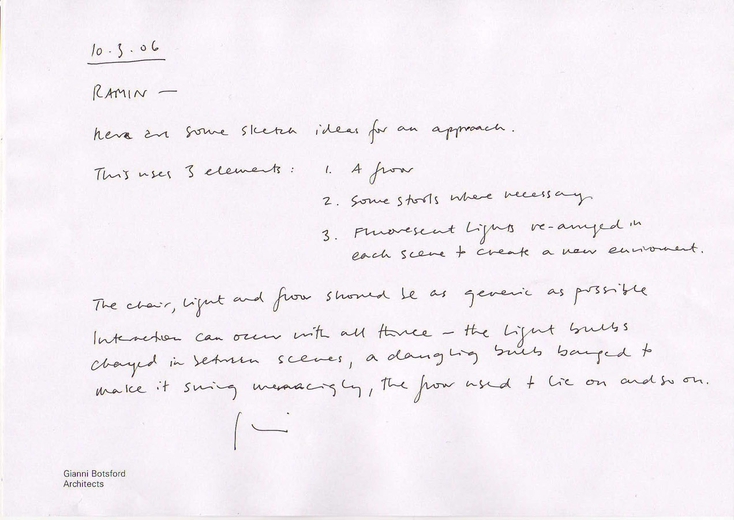 10.3.06
RAMIN —
here are some sketch ideas for an approach.
This uses 3 elements: 1. A floor
2. Some stools where necessary
3. Fluorescent Lights re-arranged in
each scene to create a new enviroment.
The chair, light and floor should be as generic as possible
Interaction can occur with all three – the light bulbs
changed in between scenes, a dangling bulb banged to
make it swing menacigly, the floor used to lie on and so on.
Gianni Botsford
Architects